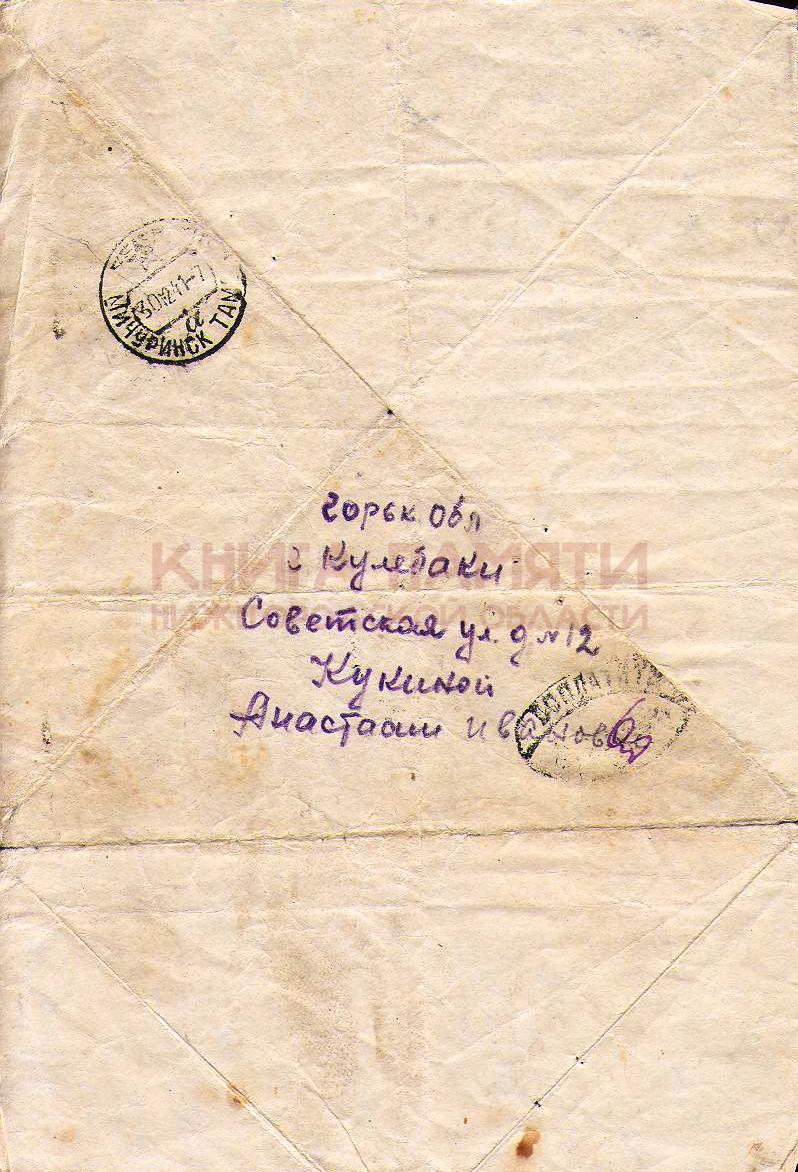 30 12 41-7
а
МИЧУРИНСК ТАМ
Горьк. обл
г Кулебаки
КНИГА ПАМЯТИ
НИЖЕГОРОДСКОЙ ОБЛАСТИ
Советская ул. д №12
Кукиной
Анастасии Ивановне